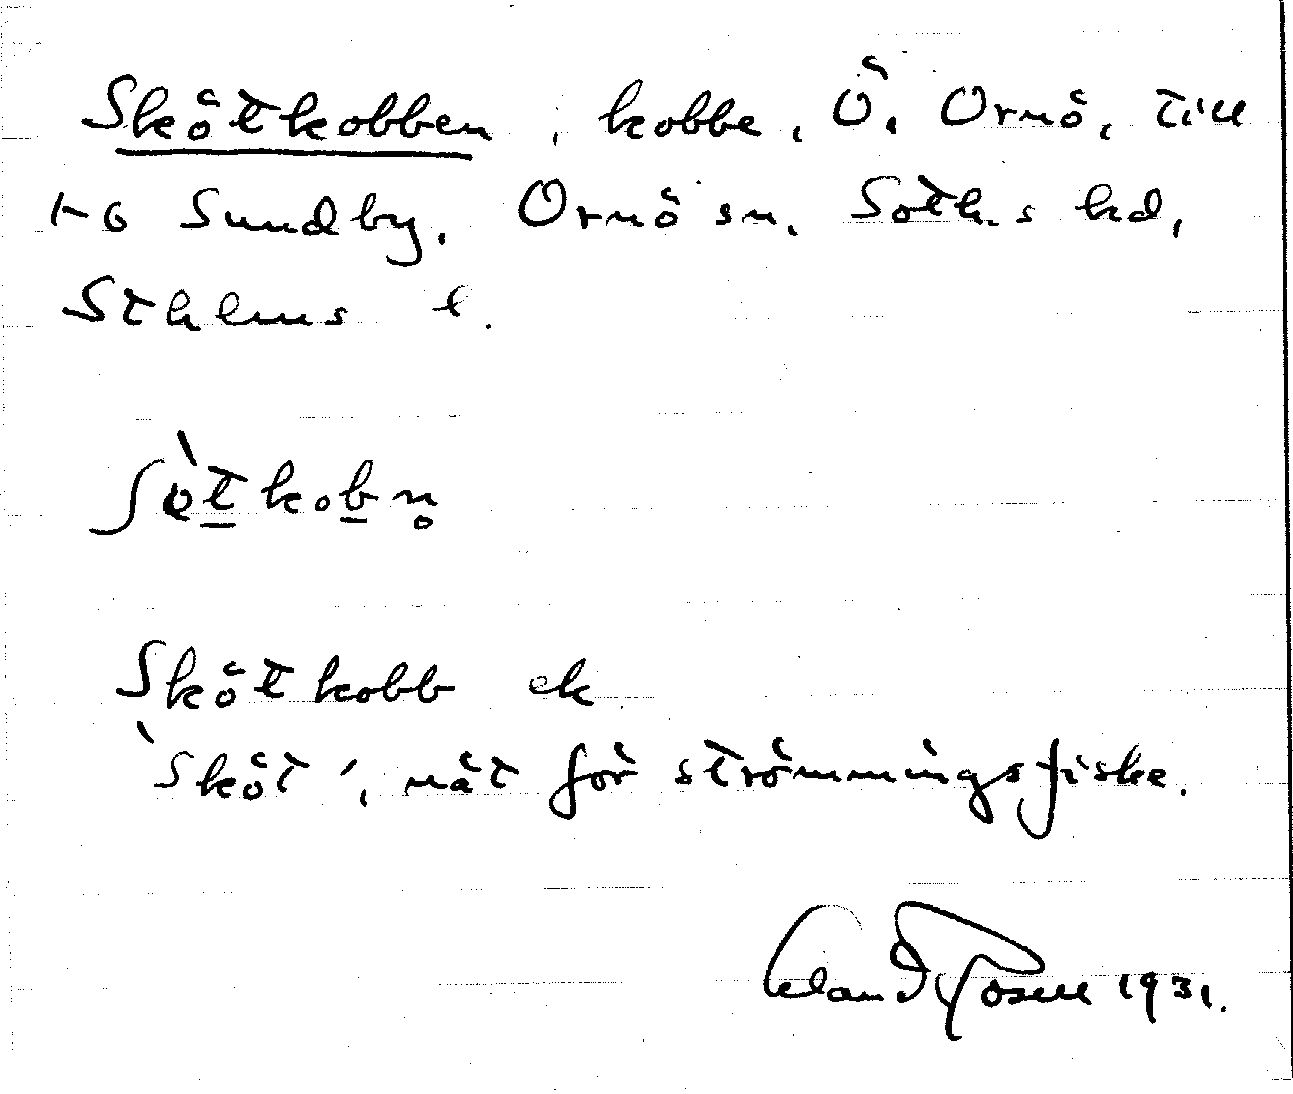 Skötkobben, kobbe, Ö. Ornö, till
1-6 Sundby, Ornö sn, Soth.s hd,
Sthlms l.
ʃø̀tkobn̥
Skötkobb ek
'Sköt', nät för strömmingsfiske.
1931.